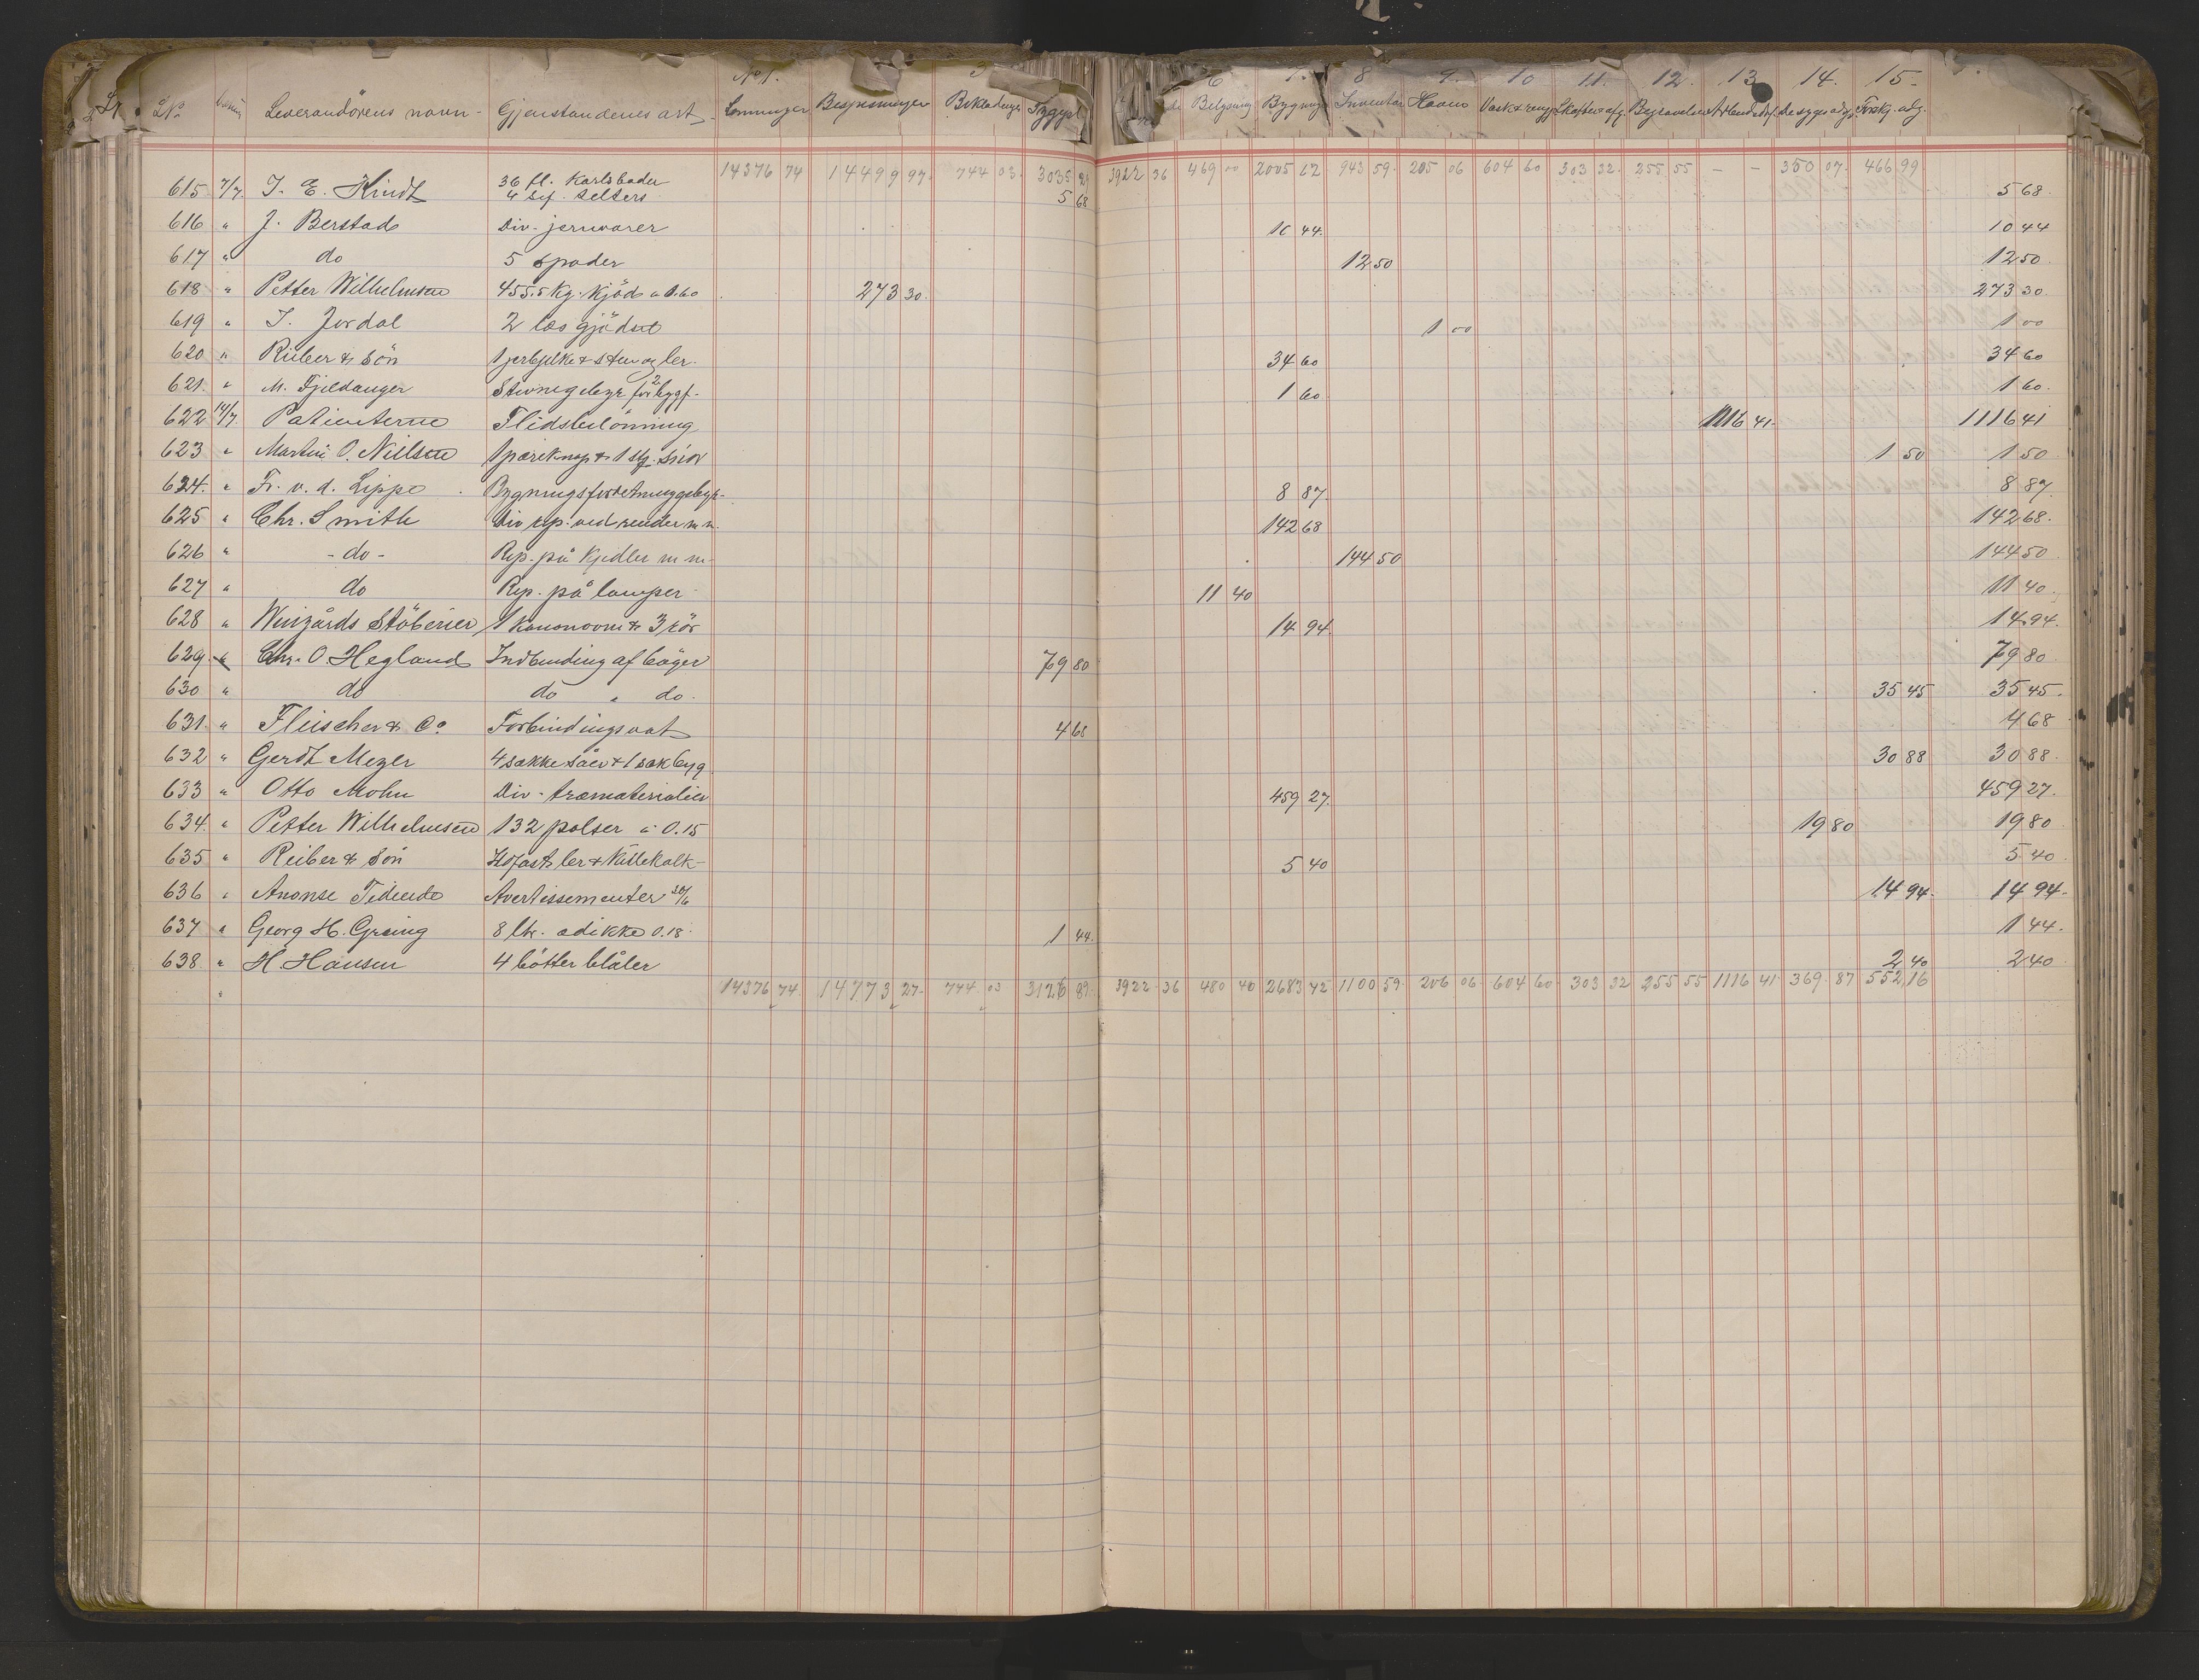 No 1. 3 6 7. 8 9. 10 11. 12. 13 14. 15.
LNo Leverandörens navn - Gjenstandenes art - Lønninger Bespisninger Beklædninger Sygepl Belysning Bygninger Inventar Haven Vask & rengj. Skatter & afg. Begravelser Arbeidsf. De syges adsp. Forskj. udg.
14376 74 14499 97 744 03 3035 3922 36 469 00 2005 62 943 59 205 06 604 60 303 32 255 55 - - 350 07 466 99
615 7/7. J. E. Kindt 36 fl. Karlsbader
4 sif. selters 5 68 5 68
616 " J. Berstad Div. jernvarer 10 44 10 44
617 " do 5 spader 12 50 12 50
618 " Petter Wilhelmsen 455.5 kg. kjöd a 0.60 273 30 273 30
619 " J. Jordal 2 læs gjödsel 1 00 1 00
620 " Rieber & Sön 1 jerbjelke & sten og ler. 34 60 34 60
621. " M. Fjeldanger 1 60 1 60
622 14/7 Patienterne Flidsbelönning 1116 41 1116 41
623 " Martin O. Nilsen 1 50 1 50
624. " Fr. v. d. Lippe Bygningsforretninggebyr 8 87 8 87
625 " Chr. Smith Div rep. ved render m m. 142 68 142 68
626 " - do - Rep. på kjedler m m. 144 50 144 50
627 " do Rep. på lamper 11 40 11 40
628 " Wingårds Stöberier 1 kanonovn & 3 rör 14 94 14 94
629. " Chr. O. Hegland Indbinding af böger 79 80 79 80
630 " do do " do. 35 45 35 45
631. " Fleischer & Co Forbindingsvat 4 68 4 68
632 " Gerdt Meyer 4 sække såer & 1 sæk byg 30 88 30 88
633 " Otto Mohn Div. træmaterialier 459 27 459 27
634. " Petter Wilhelmsen 132 pølser a 0.15 19 80 19 80
635 " Rieber & Sön Ildfast ler & Kittekalk 5 40 5 40
636 " Anonse Tidende Avertissementer 30/6 14 94 14 94
637 " Georg H. Greing 8 ltr. edikke 0.18 1 44 1 44
638 " H. Hansen 4 bötter blåler 2 40 2 40
" 14376 74 14773 27 744 03 3126 89 3922 36 480 40 2683 42 1100 59 206 06 604 60 303 32 255 55 1116 41 369 87 552 16